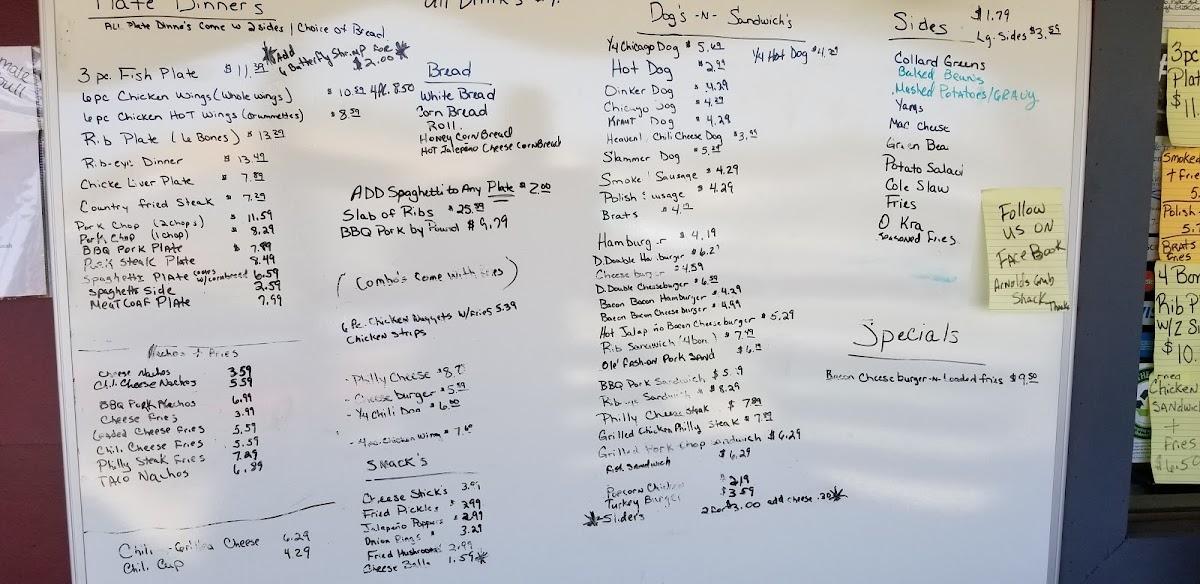 Plate Dinners
ALL Plate Dinners Come w 2 sides / Choice of Bread
Add
6 Butterfly Shrimp for
$2.00
3 pc. Fish Plate $11.39
6 pc Chicken Wings (Whole wings) $10.89 4pc. 8.50
6 pc Chicken HOT Wings (Drummettes) $8.39
Rib Plate (6 Bones) $13.29
Rib-eye Dinner $13.49
Chicke Liver Plate $7.89
Country fried Steak $7.29
Pork Chop (2 chops) $11.59
Pork Chop (1 chop) $8.29
BBQ Pork Plate $7.99
Pork Steak Plate 8.49
Spaghetti Plate comes w/cornbread 6.59
Spaghetti Side 2.59
MeatLOAF Plate 7.99
Nachos + Fries
Cheese Nachos 3.59
Chili Cheese Nachos 5.59
BBQ Pork Nachos 6.99
Cheese Fries 3.99
Loaded Cheese Fries 5.59
Chili Cheese Fries 5.59
Philly Steak Fries 7.29
TACO Nachos 6.89
Chili - Grilled Cheese 6.29
Chili Cup 4.29
All Drinks
Bread
White Bread
Corn Bread
Roll
Honey Corn Bread
HOT Jalepeño Cheese CornBread
ADD Spaghetti to Any Plate $2.00
Slab of Ribs $25.99
BBQ Pork by Pound $9.79
(Combo's Come with fries)
6 Pc. Chicken Nuggets w/Fries 5.39
Chicken Strips
- Philly Cheese
- Cheese burger
- 1/4 Chili Dog $6.00
- 4 pc. Chicken Wing
Snack's
Cheese Stick's
Fried Pickles $3.99
Jalapeño Poppers $2.99
Onion Rings 3.29
Fried Mushrooms 2.99
Cheese Balls 1.59
Dog's -N- Sandwich's
1/4 Chicago Dog 1/4 Hot Dog $4.29
Hot Dog
Oinker Dog $4.29
Chicago Dog $4.29
Kraut Dog $4.29
Heavenly Chili Cheese Dog
Slammer Dog
Smoked Sausage $4.29
Polish Sausage $4.29
Brats
Hamburger $4.19
D. Double Hamburger
Cheese burger $4.59
D. Double Cheeseburger
Bacon Bacon Hamburger $4.29
Bacon Bacon Cheeseburger $4.99
Hot Jalapeño Bacon Cheeseburger $5.29
Rib Sandwich (4 bon.) $7.49
Ole' Fashion Pork Sand
BBQ Pork Sandwich
Rib-eye Sandwich $8.29
Philly Cheese Steak $7.89
Grilled Chicken Philly Steak
Grilled Pork Chop Sandwich $6.29
Fish Sandwich $6.29
Popcorn Chicken $2.19
Turkey Burger $3.59
Sliders 2 for $3.00 add cheese .20
Sides $1.79
Lg. Sides
Collard Greens
Baked Beans
Mashed Potatoes/GRAVY
Yams
Mac Cheese
Green Bea
Potato Salad
Cole Slaw
Fries
O Kra
Seasoned Fries
Follow
US ON
FaceBook
Arnolds Grab
Shack Thanks
Specials
Bacon Cheeseburger -N- Loaded fries $9.50
3pc
Plat
$11.
Smoked
+ Fries
Polish
BRATS
Fries
4 Bon
Rib P
w/2 S
$10.
Fried
Chicken
SANDwich
+
Fries
$6.50